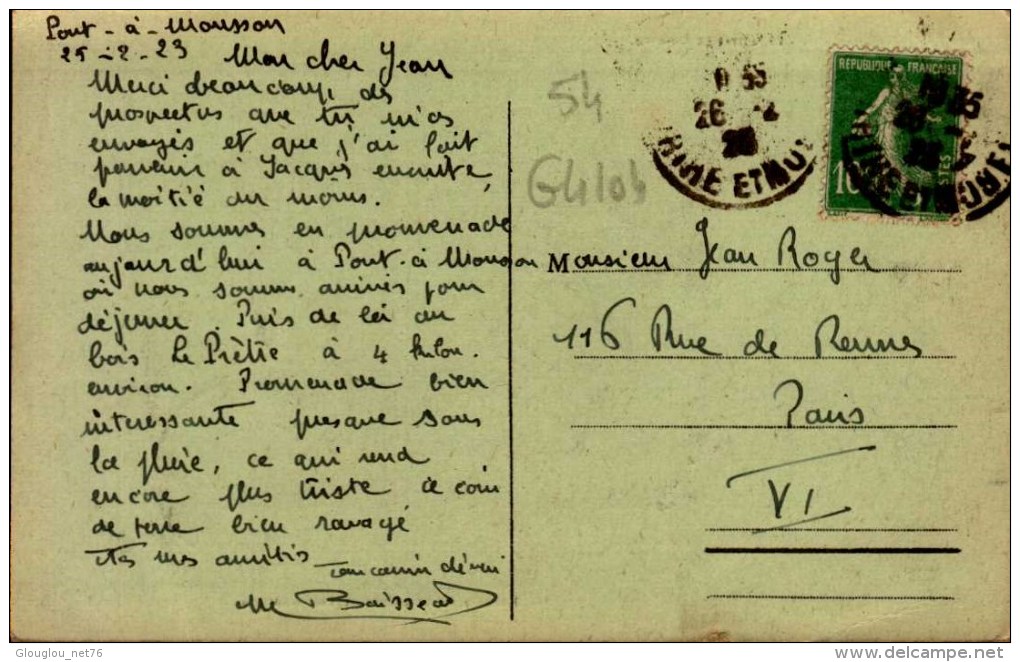 Pont-à-Mousson
25-2-23
Mon cher Jean
Merci beaucoup des
prospectus que tu m'as
envoyés et que j'ai fait
parvenir à Jacques ensuite,
la moitié du moins.
Nous sommes en promenade
aujourd'hui à Pont-à-Mousson
où nous sommes arrivés pour
déjeuner. Puis de là au
bois Le Prêtre à 4 kilom.
environ. Promenade bien
interessante presque sous
la pluie, ce qui rend
encore plus triste ce coin
de terre bien ravagé
mes amitiés
Ton cousin
Boisseau
54
G4104
Monsieur Jean Roger
116 Rue de Rennes
Paris
VI
REPUBLIQUE FRANÇAISE
POSTES
10
26 -2
RTHE ET MO
Glouglou_net76
delcampe.net